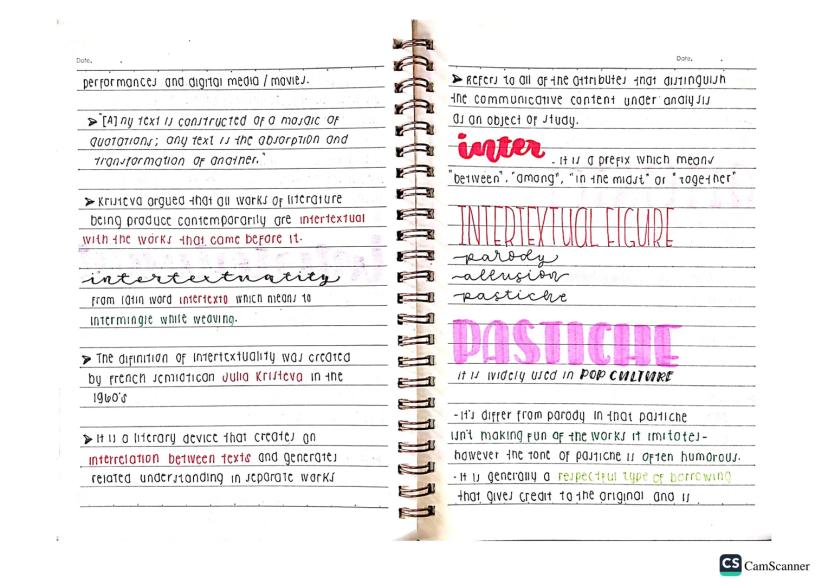 Date.
performances and digital media / movies.
➤ "[A]ny text is constructed of a mosaic of
quotations; any text is the absorption and
transformation of another."
➤ Kristeva argued that all works of literature
being produce contemporarily are intertextual
with the works that came before it.
intertextuality
from latin word intertexto which means to
intermingle while weaving.
➤ The difinition of intertextuality was created
by french semiotican Julia Kristeva in the
1960's
➤ It is a literary device that creates an
interrelation between texts and generates
related understanding in separate works
Date.
➤ Refers to all of the attributes that distinguish
the communicative content under analysis
as an object of study.
inter - it is a prefix which means
"between", "among", "in the midst" or "together"
INTERTEXTUAL FIGURE
-parody
-allusion
-pastiche
PASTICHE
it is widely used in POP CULTURE
- it's differ from parody in that pastiche
isn't making fun of the works it imitates-
however the tone of pastiche is often humorous.
- it is generally a respectful type of borrowing
that gives credit to the original and is
CS CamScanner